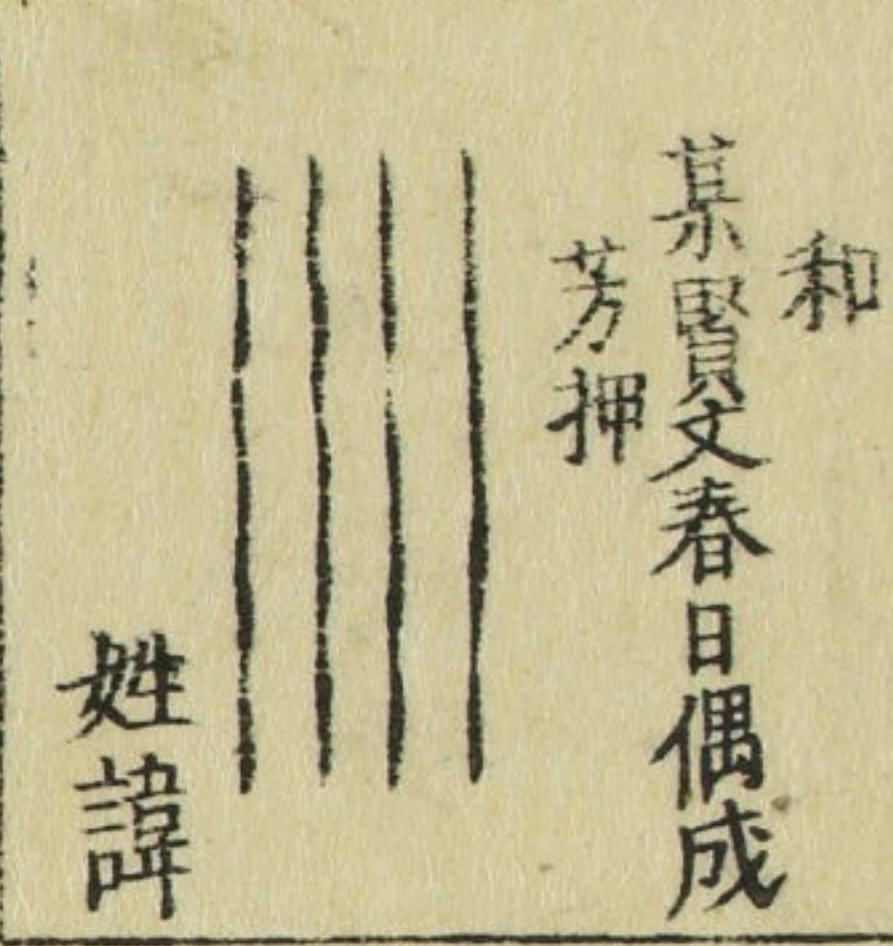 和
某賢文春日偶成
芳押
姓諱